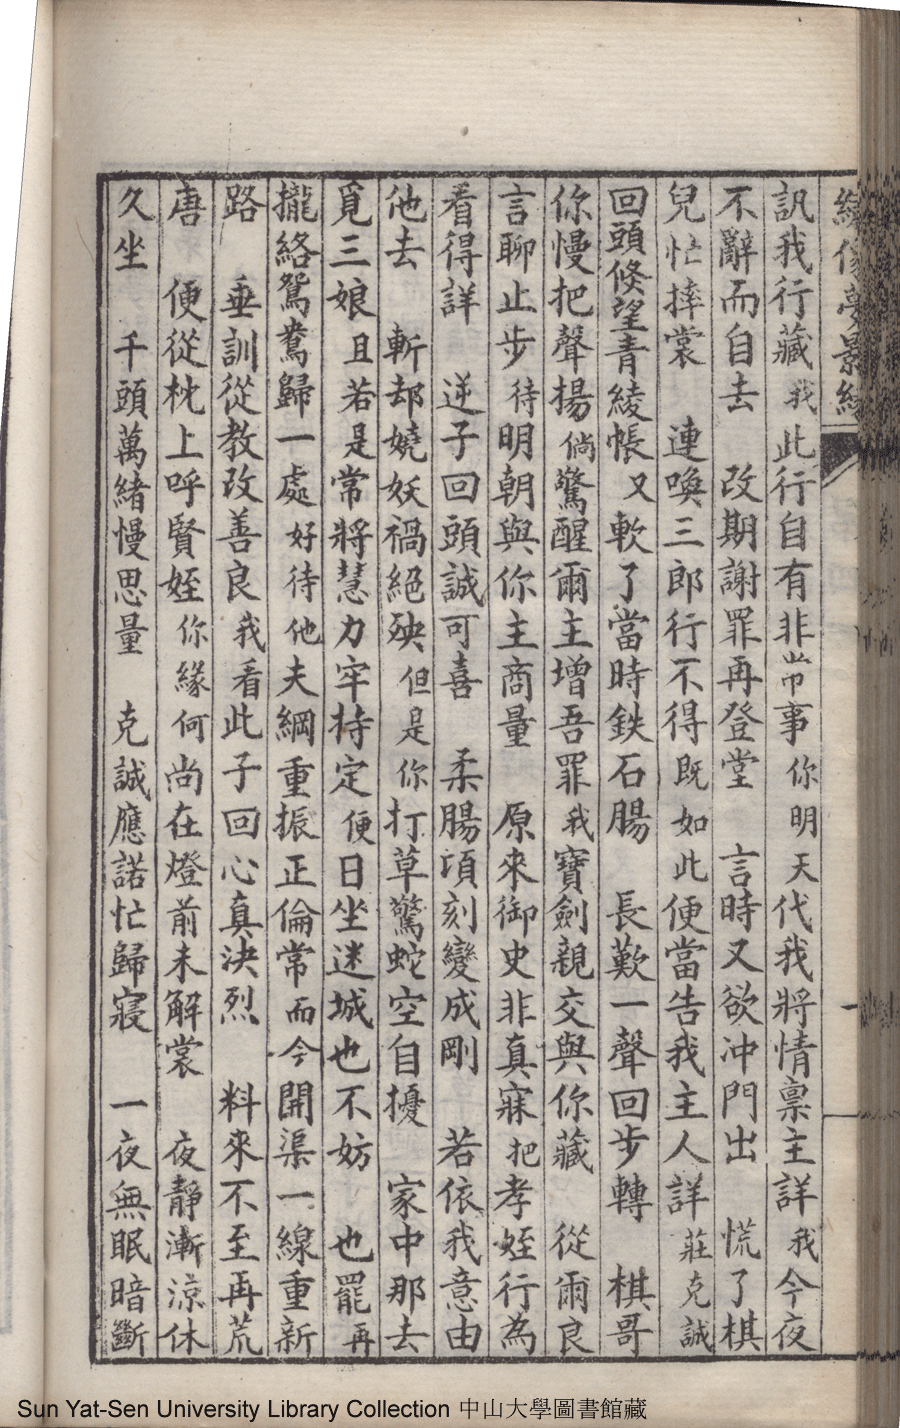 訊我行藏 我此行自有非常事 你明天代我將情禀主詳 我今夜
不辭而自去 改期謝罪再登堂 言時又欲冲門出 慌了棋
兒忙摔裳 連喚三郎行不得 既如此便當告我主人詳 莊克誠
回頭倏望青綾帳 又軟了當時鉄石腸 長歎一聲回步轉 棋哥
你慢把聲揚 倘驚醒爾主增吾罪 我寶劍親交與你藏 從爾良
言聊止步 待明朝與你主商量 原來御史非真寐 把孝姪行為
看得詳 逆子回頭誠可喜 柔腸項刻變成剛 若依我意由
他去 斬却嬈妖禍絕殃 但是你打草驚蛇空自擾 家中那去
覓三娘 且若是常將慧力牢持定 便日坐迷城也不妨 也罷再
攏絡鴛鴦歸一處 好待他夫綱重振正倫常 而今開渠一線重新
路 垂訓從教改善良 我看此子回心真決烈 料來不至再荒
唐 便從枕上呼賢姪 你緣何尚在燈前未解裳 夜靜漸涼休
久坐 千頭萬緒慢思量 克誠應諾忙歸寢 一夜無眠暗斷
Sun Yat-Sen University Library Collection 中山大學圖書館藏